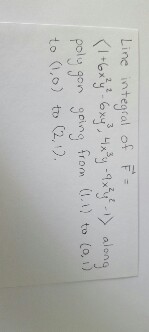 Line integral of F⃗ =
⟨1+6x²y²-6xy³, 4x³y-9x²y²-1⟩ along
polygon going from (1,1) to (0,1)
to (1,0) to (2,1).